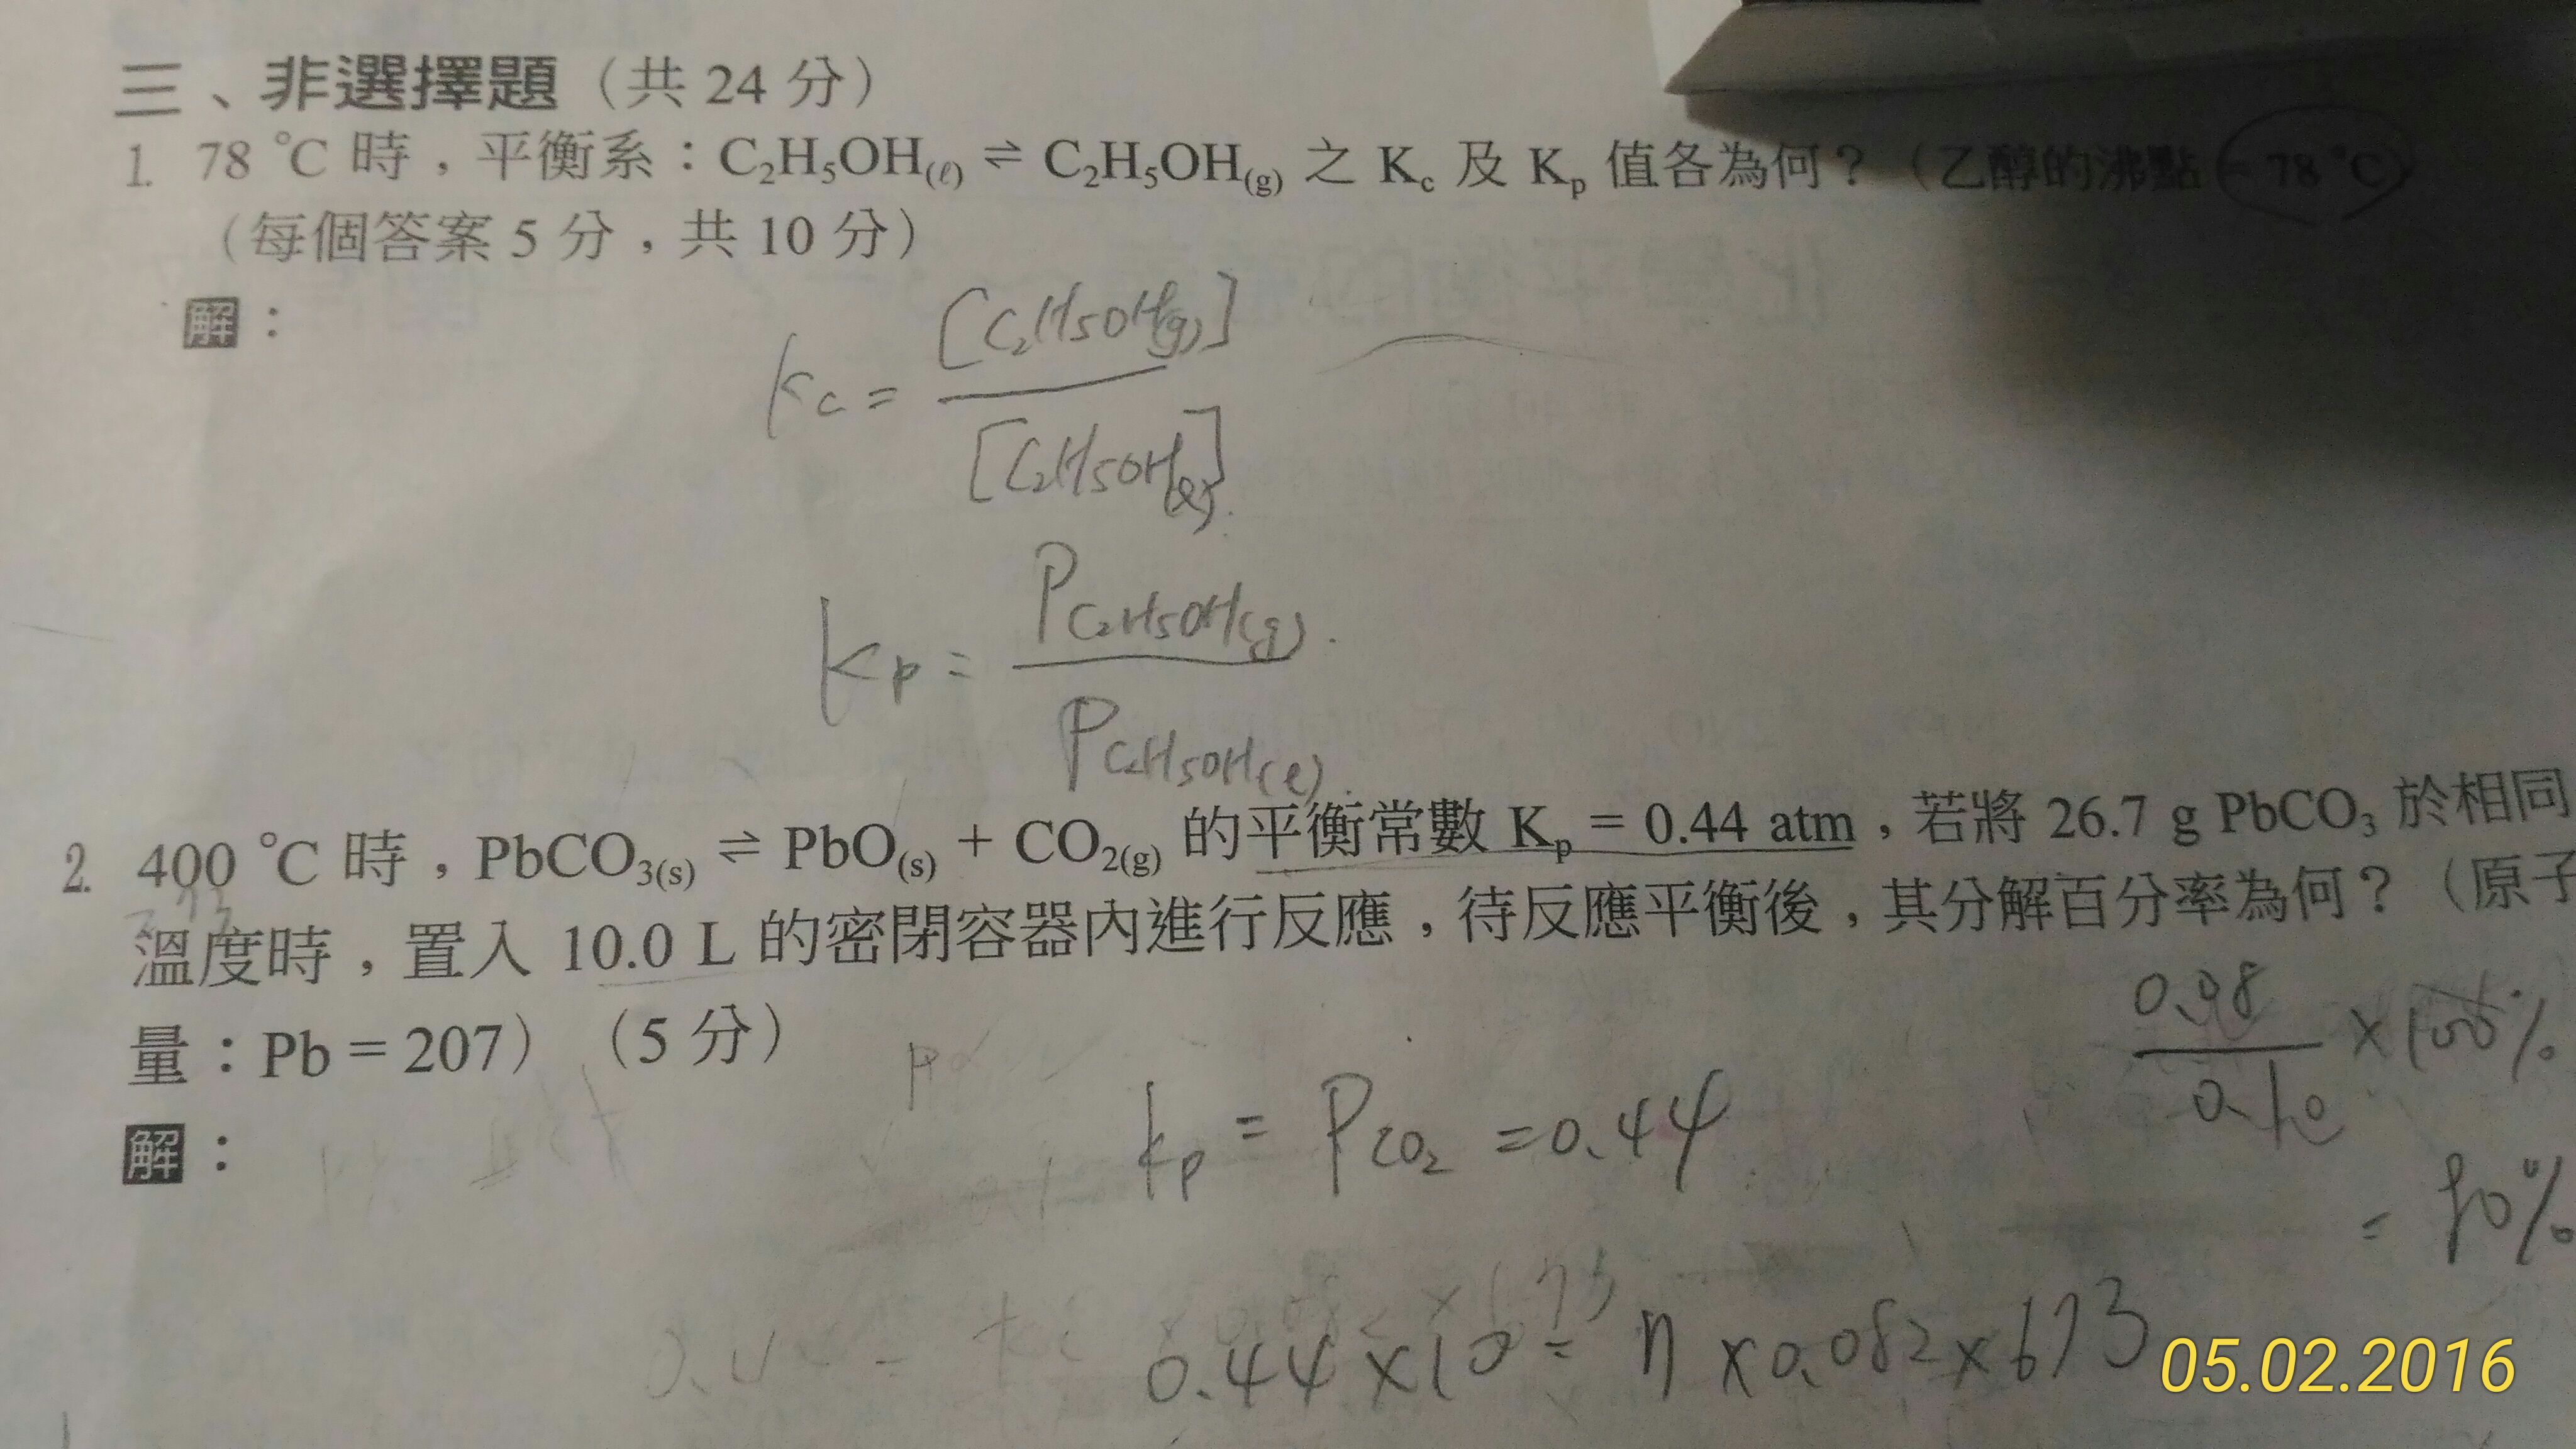 三、非選擇題（共 24 分）
1. 78 ℃ 時，平衡系：C₂H₅OH₍ℓ₎ ⇌ C₂H₅OH₍g₎ 之 Kc 及 Kp 值各為何？（乙醇的沸點 = 78 ℃）
（每個答案 5 分，共 10 分）
解：
Kc = [C₂H₅OH(g)] / [C₂H₅OH(ℓ)]
Kp = P C₂H₅OH(g) / P C₂H₅OH(ℓ)
2. 400 ℃ 時，PbCO₃₍s₎ ⇌ PbO₍s₎ + CO₂₍g₎ 的平衡常數 Kp = 0.44 atm，若將 26.7 g PbCO₃ 於相同
溫度時，置入 10.0 L 的密閉容器內進行反應，待反應平衡後，其分解百分率為何？（原子
量：Pb = 207）（5 分）
解：
Kp = P CO₂ = 0.44
0.44 × 10 = n × 0.082 × 673
× 100%
= 80%
05.02.2016